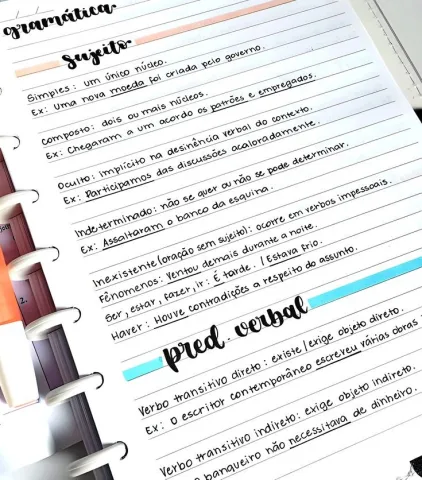 gramática
sujeito
Simples: um único núcleo.
Ex: Uma nova moeda foi criada pelo governo.
composto: dois ou mais núcleos.
Ex: Chegaram a um acordo os patrões e empregados.
Oculto: implícito na desinência verbal do contexto.
Ex: Participamos das discussões acaloradamente.
Indeterminado: não se quer ou não se pode determinar.
Ex: Assaltaram o banco da esquina.
Inexistente (oração sem sujeito): ocorre em verbos impessoais.
Fênomenos: Ventou demais durante a noite.
Ser, estar, fazer, ir: É tarde. / Estava frio.
Haver: Houve contradições a respeito do assunto.
pred. verbal
Verbo transitivo direto: existe/exige objeto direto.
Ex: O escritor contemporâneo escreveu várias obras
Verbo transitivo indireto: exige objeto indireto.
banqueiro não necessitava de dinheiro.
2.